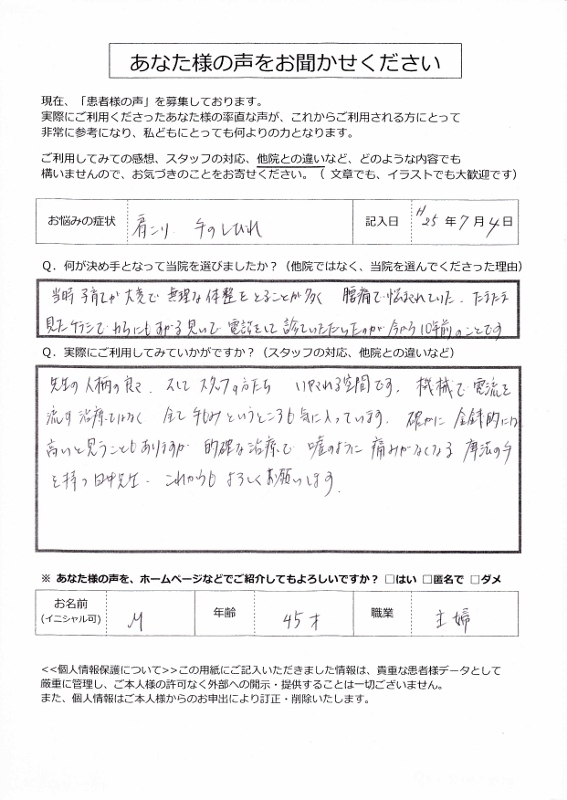 あなた様の声をお聞かせください
現在、「患者様の声」を募集しております。
実際にご利用くださったあなた様の率直な声が、これからご利用される方にとって
非常に参考になり、私どもにとっても何よりの力となります。
ご利用してみての感想、スタッフの対応、他院との違いなど、どのような内容でも
構いませんので、お気づきのことをお寄せください。（ 文章でも、イラストでも大歓迎です）
お悩みの症状 肩こり 手のしびれ 記入日 H25 年 7 月 4 日
Q．何が決め手となって当院を選びましたか？（他院ではなく、当院を選んでくださった理由）
当時 子育てが大変で 無理な体勢をとることが多く 腰痛で悩まされていた。たまたま
見たチラシでわらにもすがる思いで 電話をして 診ていただいたのが 今から10年前のことです
Q．実際にご利用してみていかがですか？（スタッフの対応、他院との違いなど）
先生の人柄の良さ、そして スタッフの方たち いやされる空間です。機械で電流を
流す治療ではなく 全て手もみというところも気に入っています。確かに 金銭的には
高いと思うこともありますが 的確な治療で 嘘のように 痛みがなくなる 魔法の手
を持つ田中先生。これからも よろしくお願いします。
※ あなた様の声を、ホームページなどでご紹介してもよろしいですか？ □はい □匿名で □ダメ
お名前 M 年齢 45才 職業 主婦
(イニシャル可)
<<個人情報保護について>>この用紙にご記入いただきました情報は、貴重な患者様データとして
厳重に管理し、ご本人様の許可なく外部への開示・提供することは一切ございません。
また、個人情報はご本人様からのお申出により訂正・削除いたします。